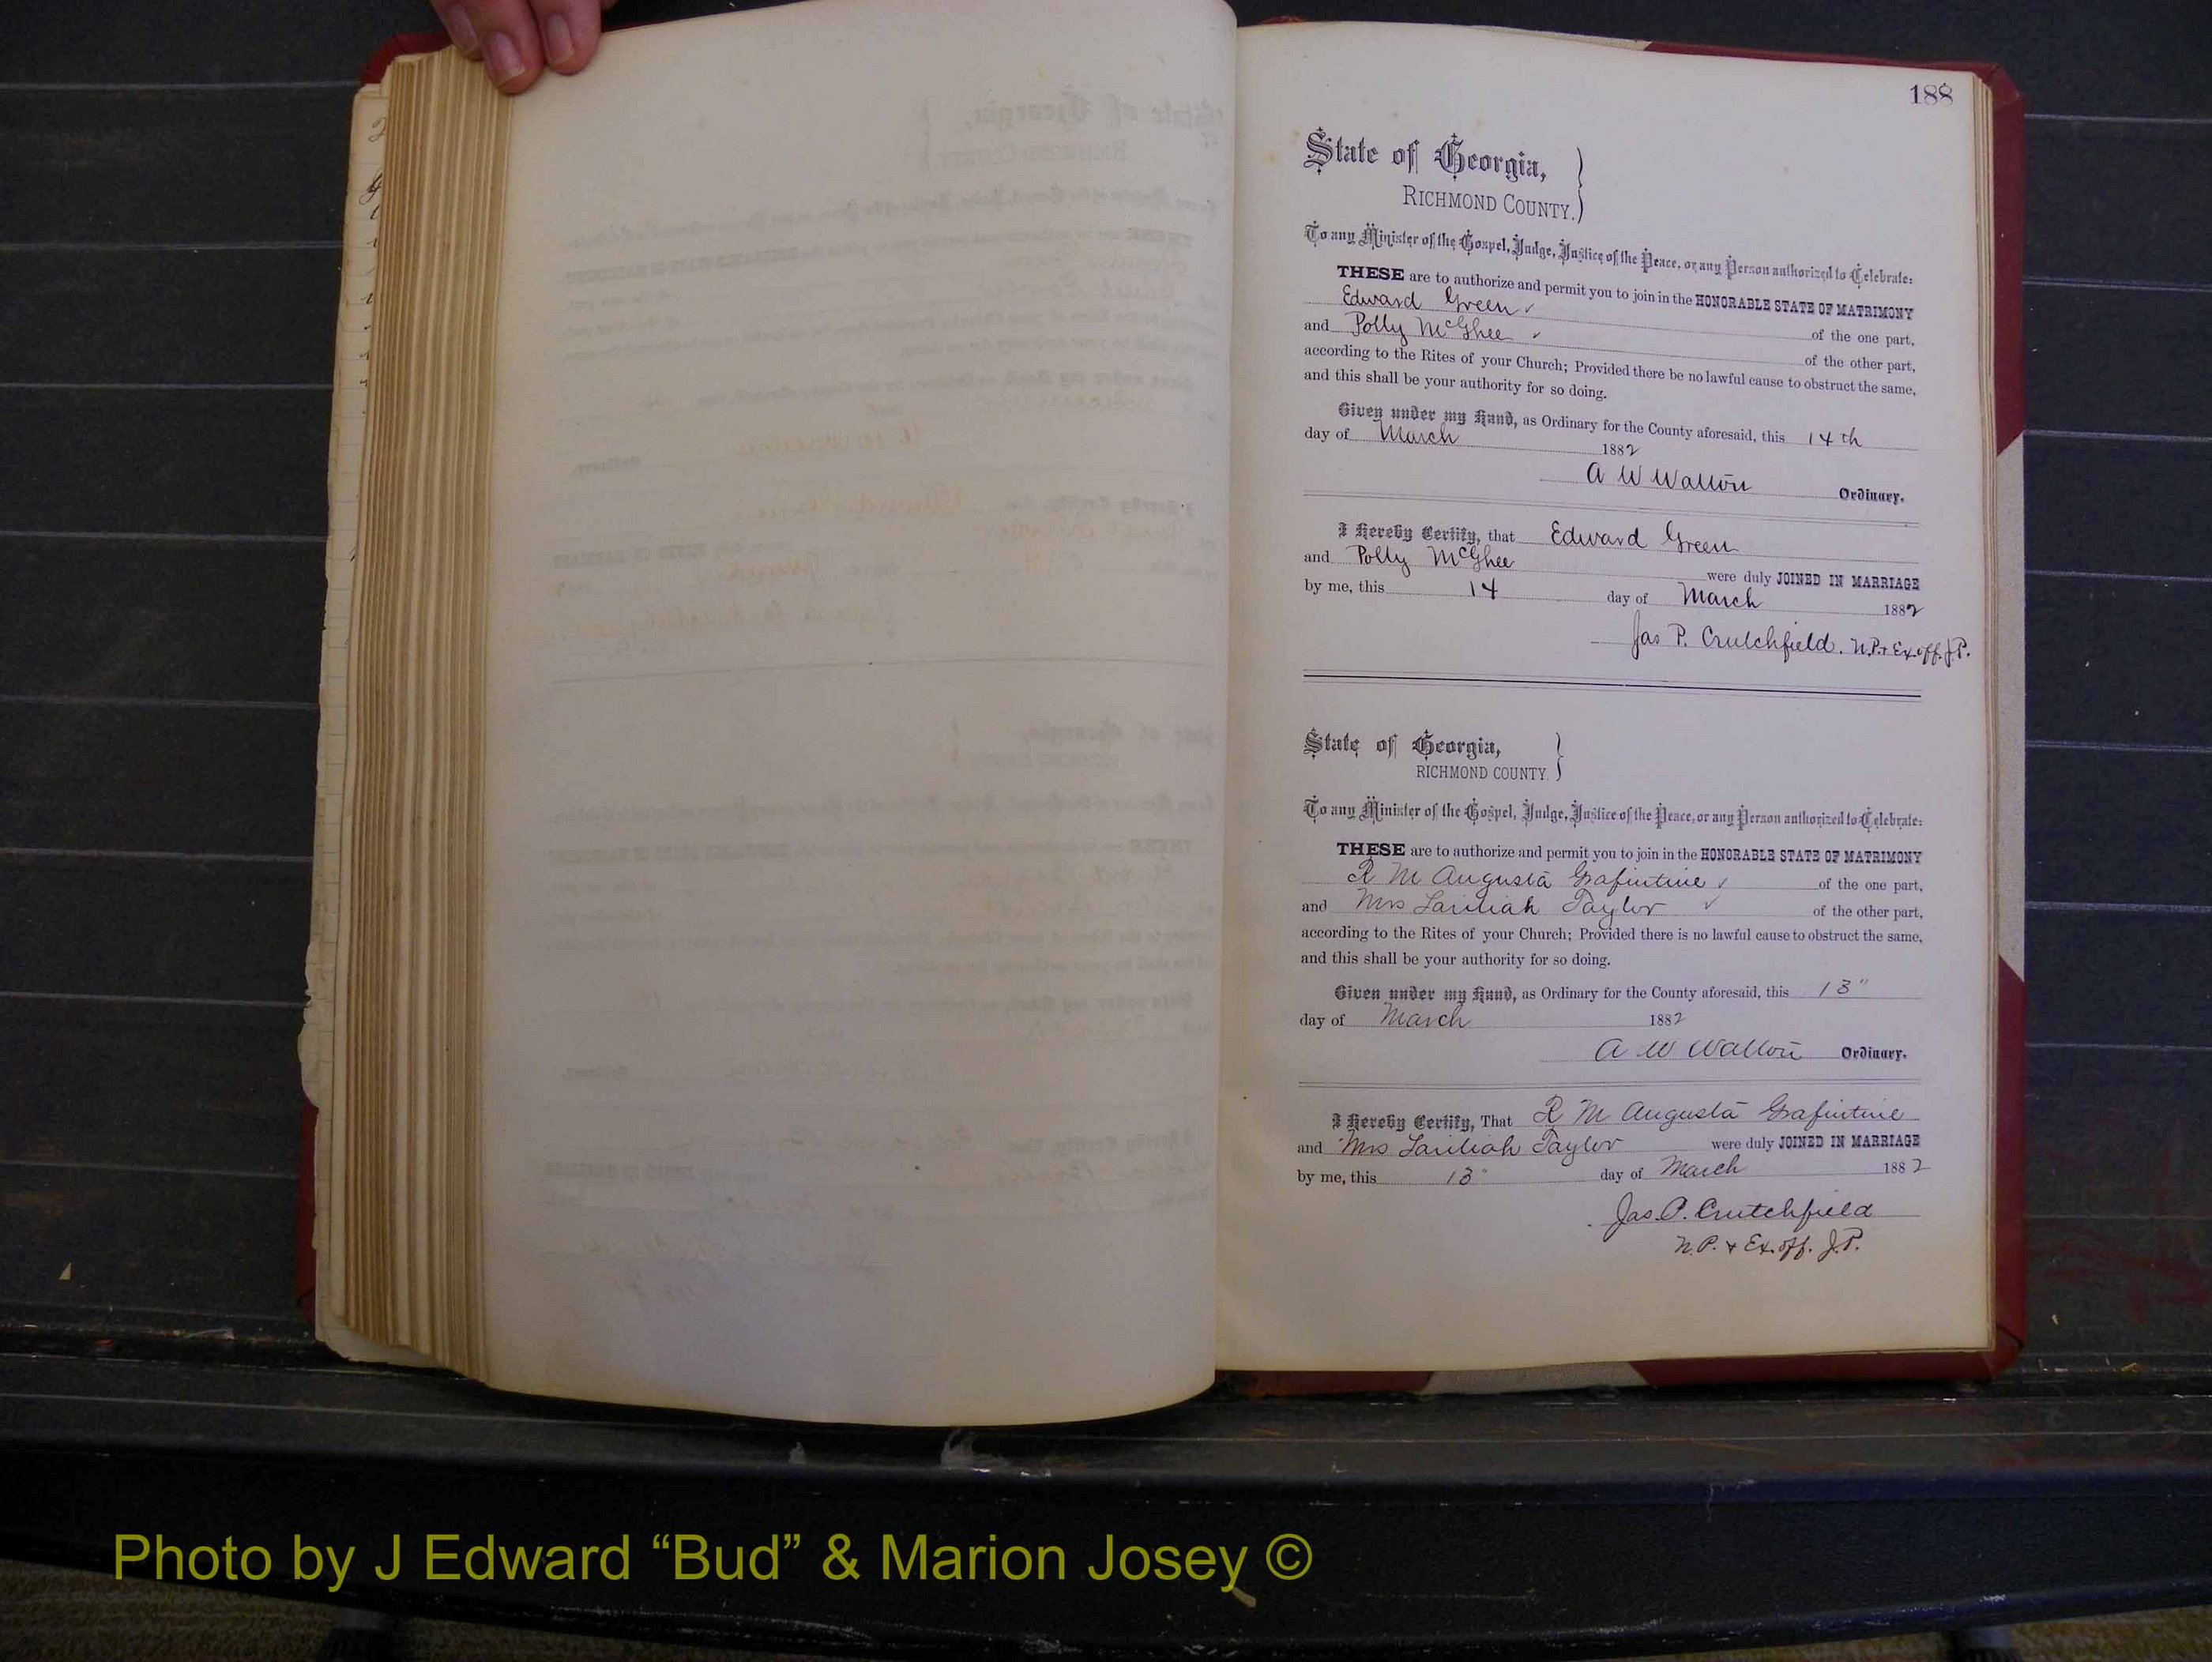 188
State of Georgia,
RICHMOND COUNTY.
To any Minister of the Gospel, Judge, Justice of the Peace, or any Person authorized to Celebrate:
THESE are to authorize and permit you to join in the HONORABLE STATE OF MATRIMONY
Edward Green of the one part,
and Polly McGhee of the other part,
according to the Rites of your Church; Provided there be no lawful cause to obstruct the same,
and this shall be your authority for so doing.
Given under my Hand, as Ordinary for the County aforesaid, this 14th
day of March 1882
A W Walton Ordinary.
I Hereby Certify, that Edward Green
and Polly McGhee were duly JOINED IN MARRIAGE
by me, this 14 day of March 1882
Jas P. Crutchfield. N.P. + Ex.off. J.P.
State of Georgia,
RICHMOND COUNTY.
To any Minister of the Gospel, Judge, Justice of the Peace, or any Person authorized to Celebrate:
THESE are to authorize and permit you to join in the HONORABLE STATE OF MATRIMONY
R M Augusta of the one part,
and Mrs Taylor of the other part,
according to the Rites of your Church; Provided there is no lawful cause to obstruct the same,
and this shall be your authority for so doing.
Given under my Hand, as Ordinary for the County aforesaid, this 13"
day of March 1882
A W Walton Ordinary.
I Hereby Certify, That R M Augusta
and Mrs Taylor were duly JOINED IN MARRIAGE
by me, this 13" day of March 1882
Jas. P. Crutchfield
N.P. + Ex.off. J.P.
Photo by J Edward “Bud” & Marion Josey ©